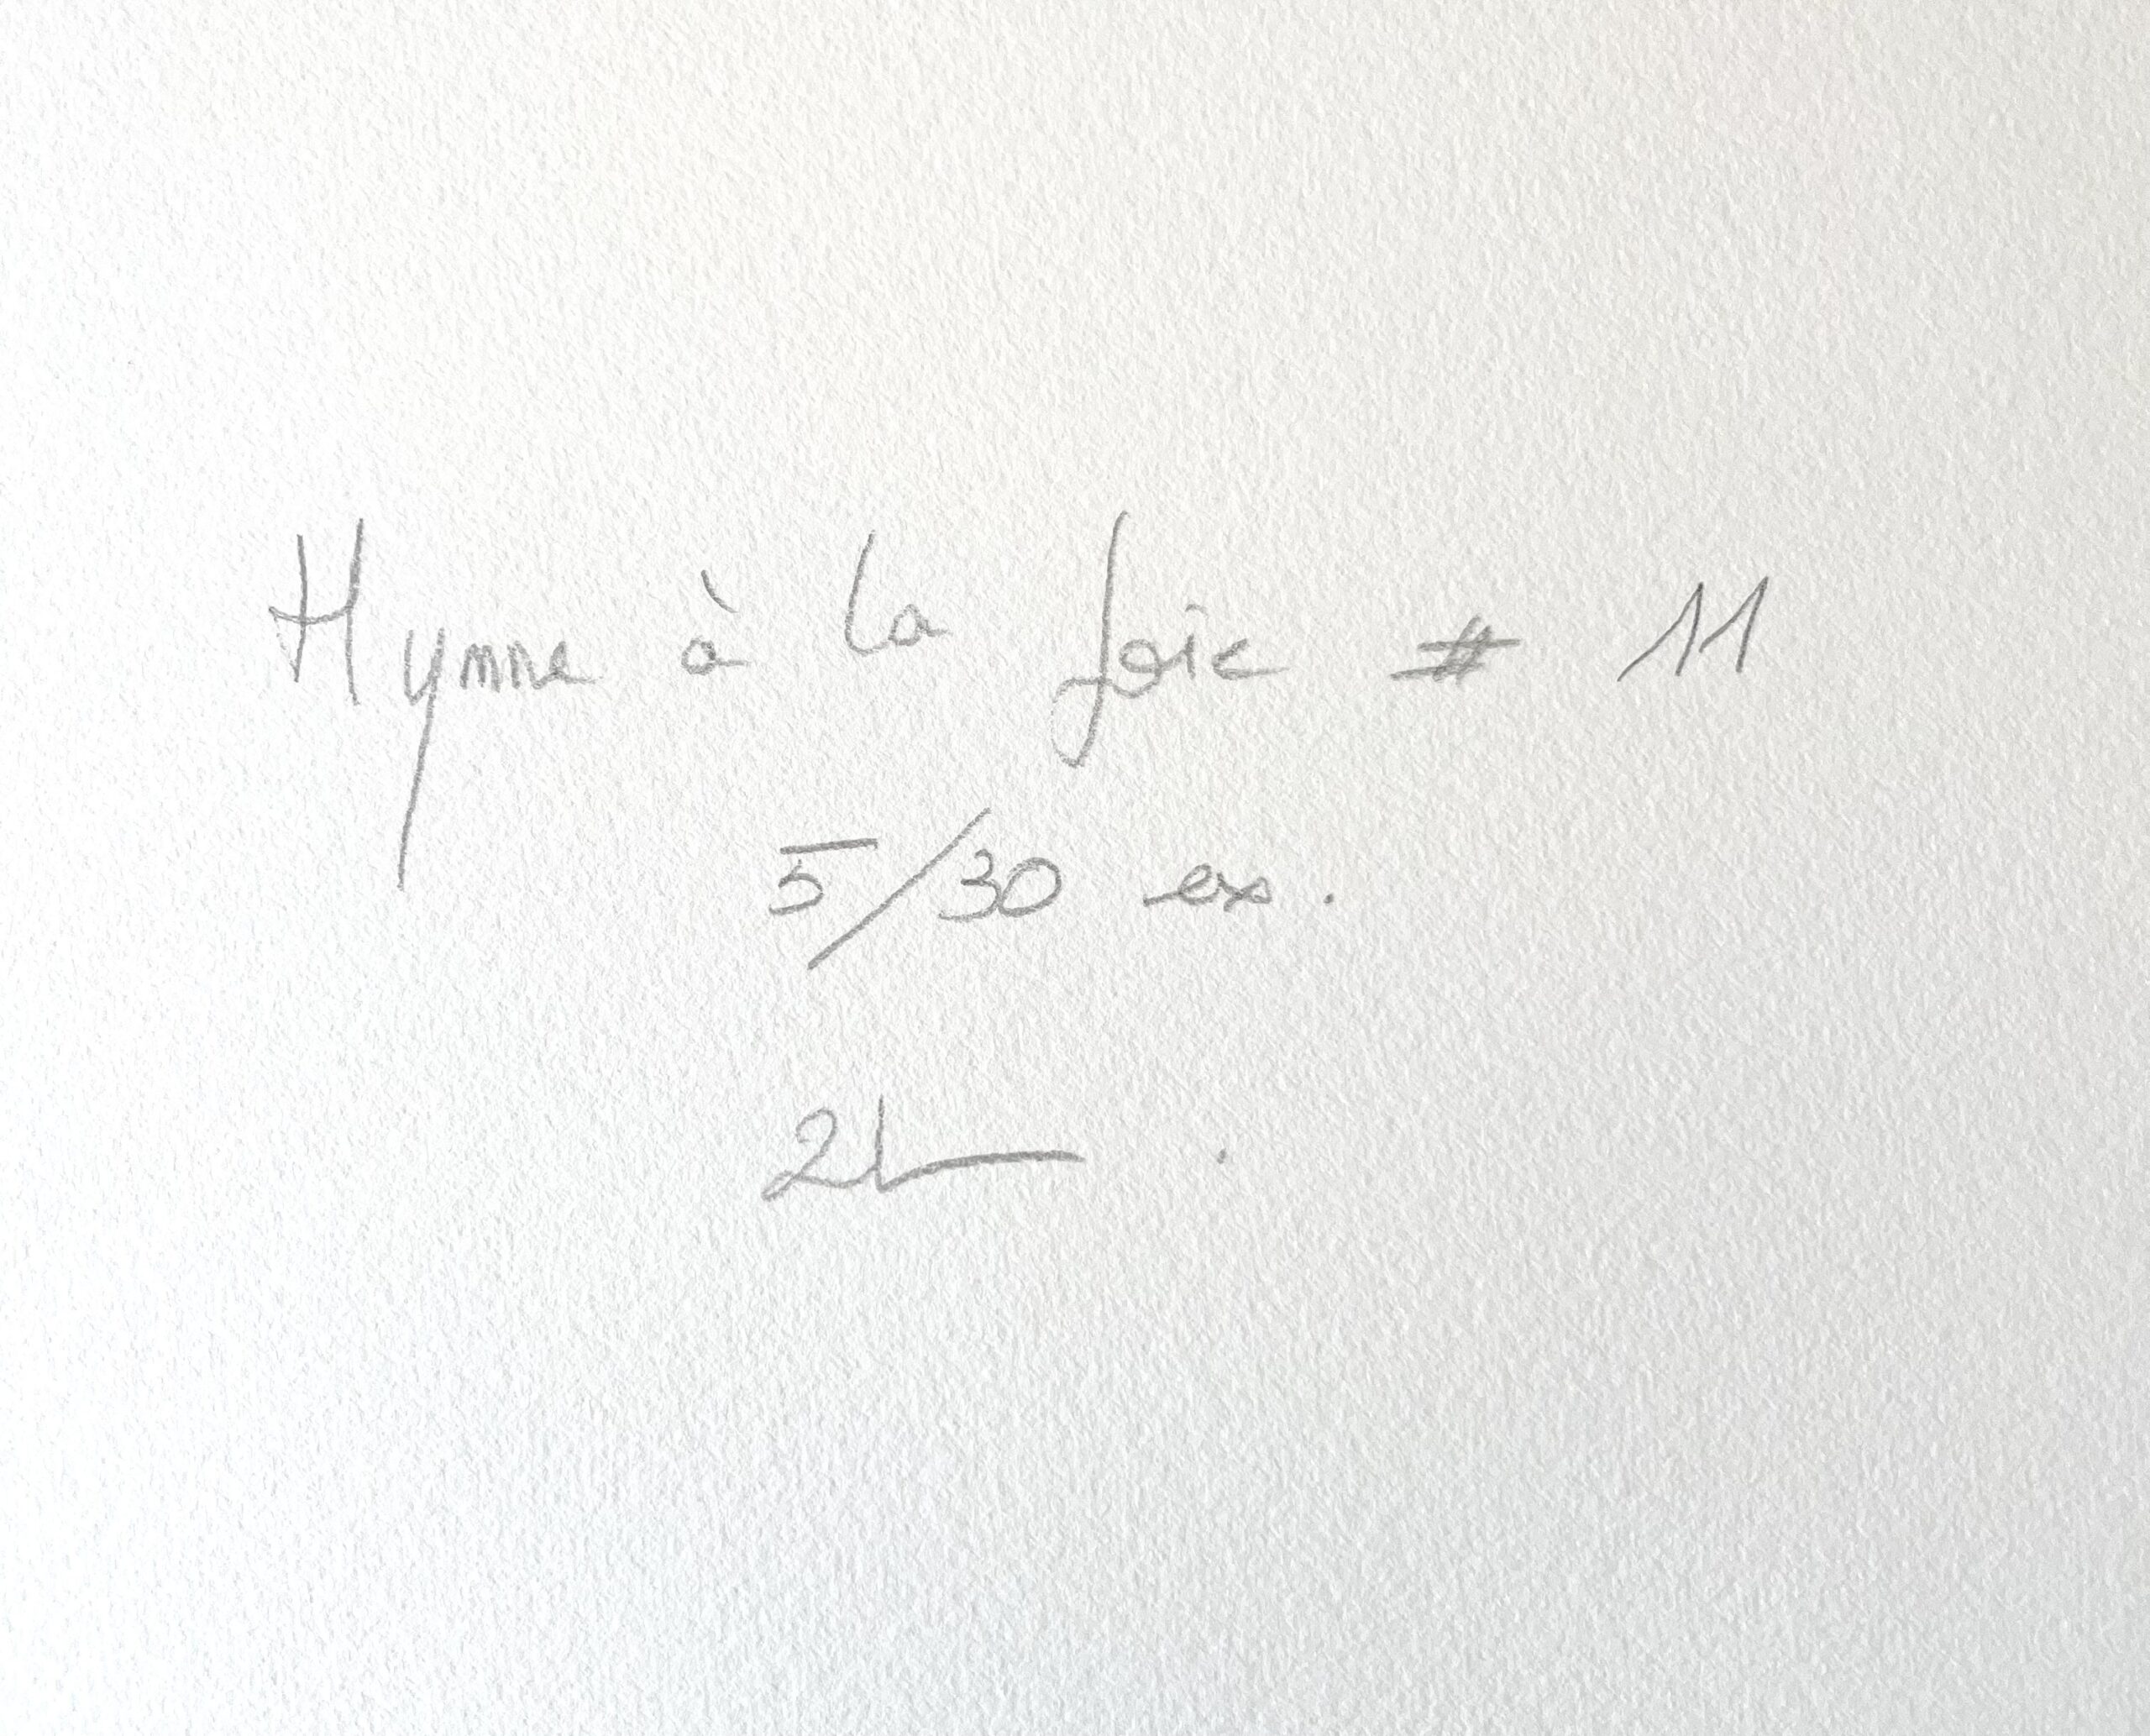 Hymne à la joie # 11
5/30 ex.